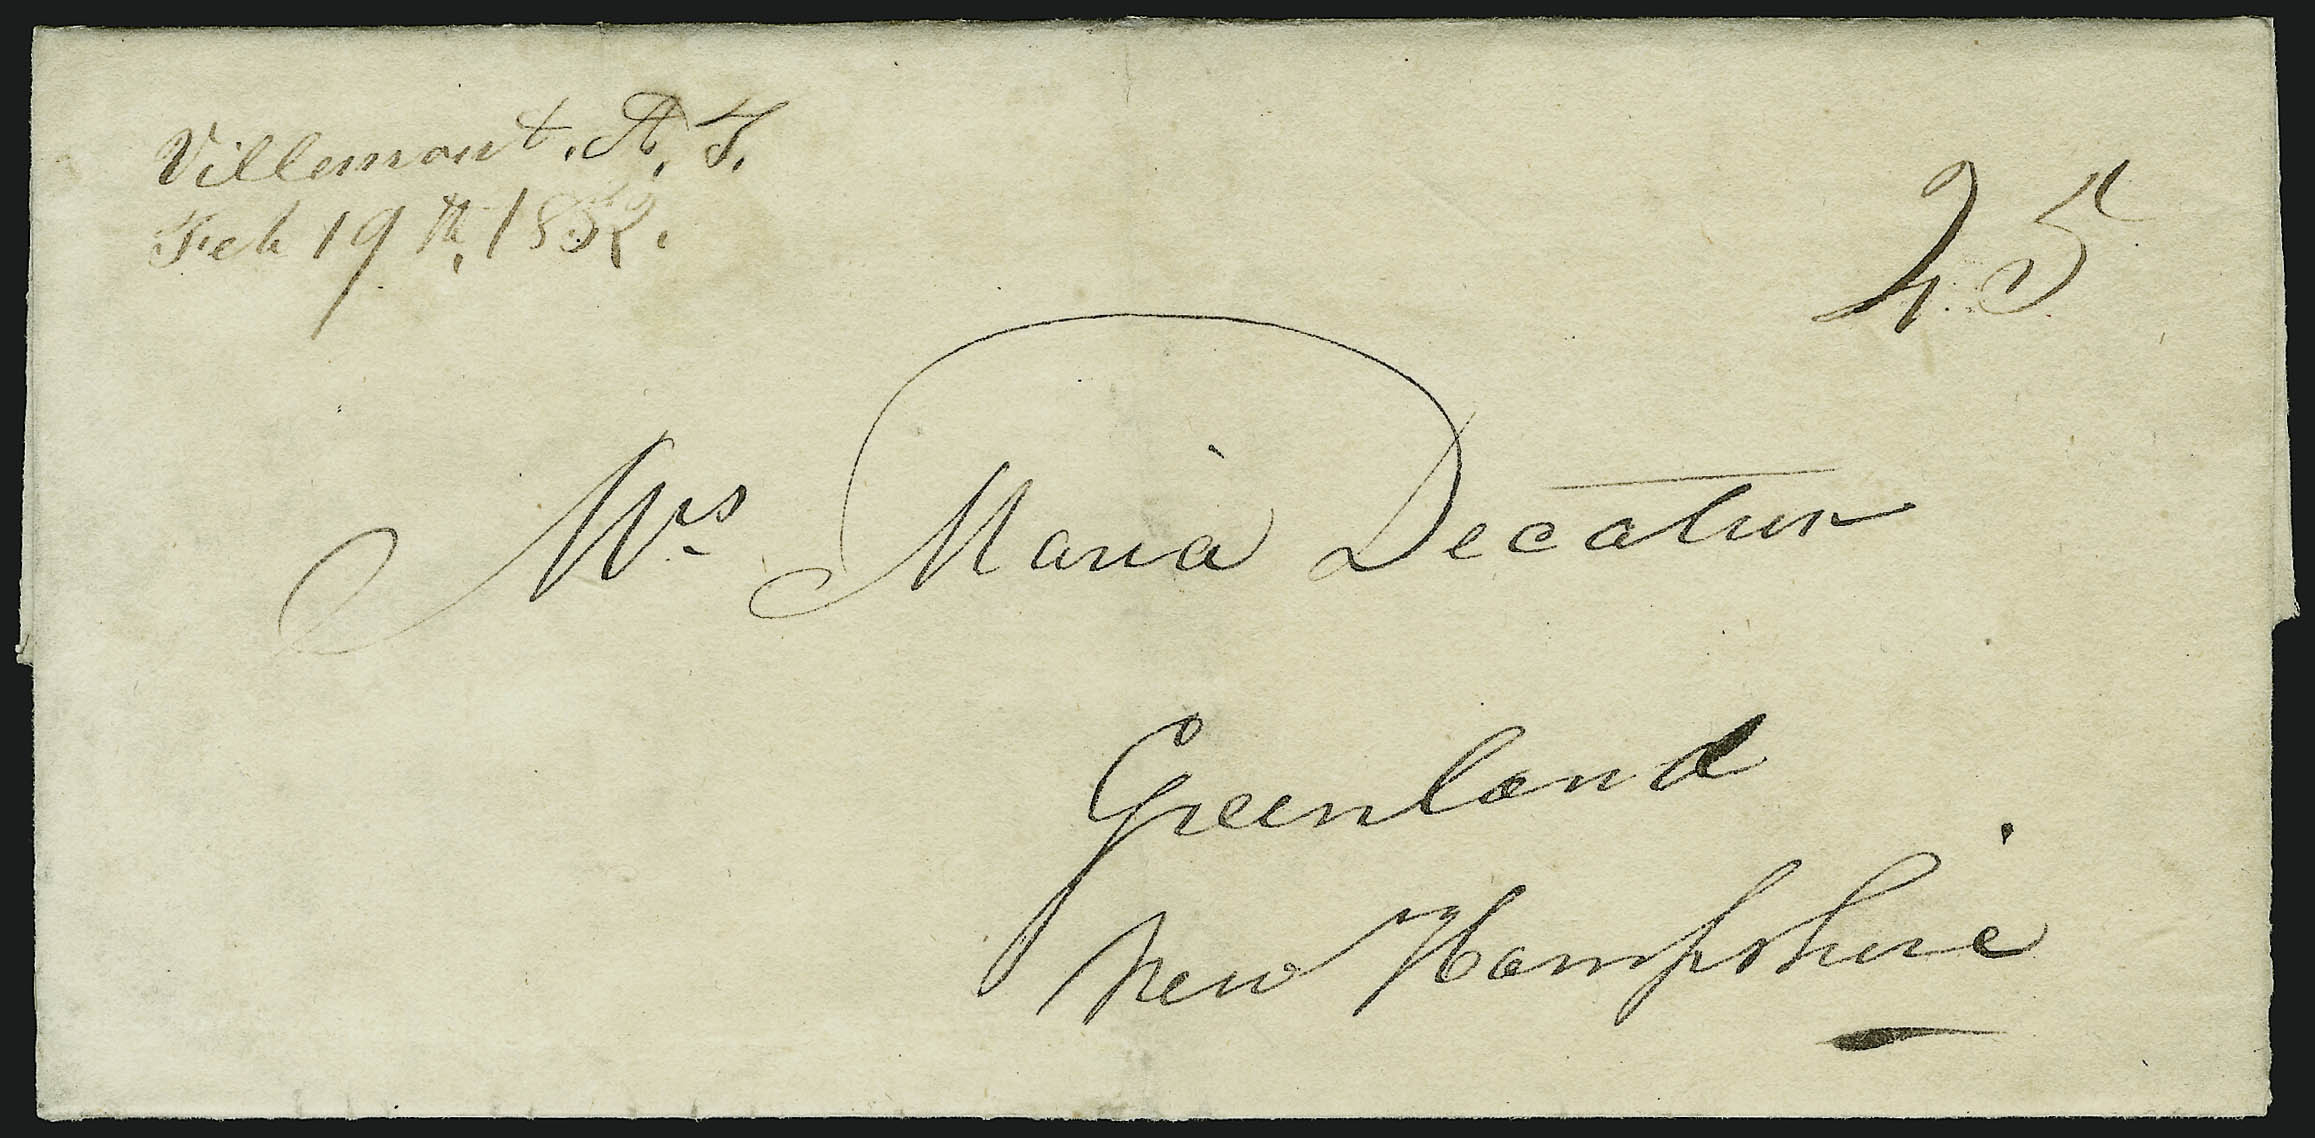 Villemont. A. T.
Feb 19th, 1832.
25
Mrs Maria Decatur
Greenland
New Hampshire